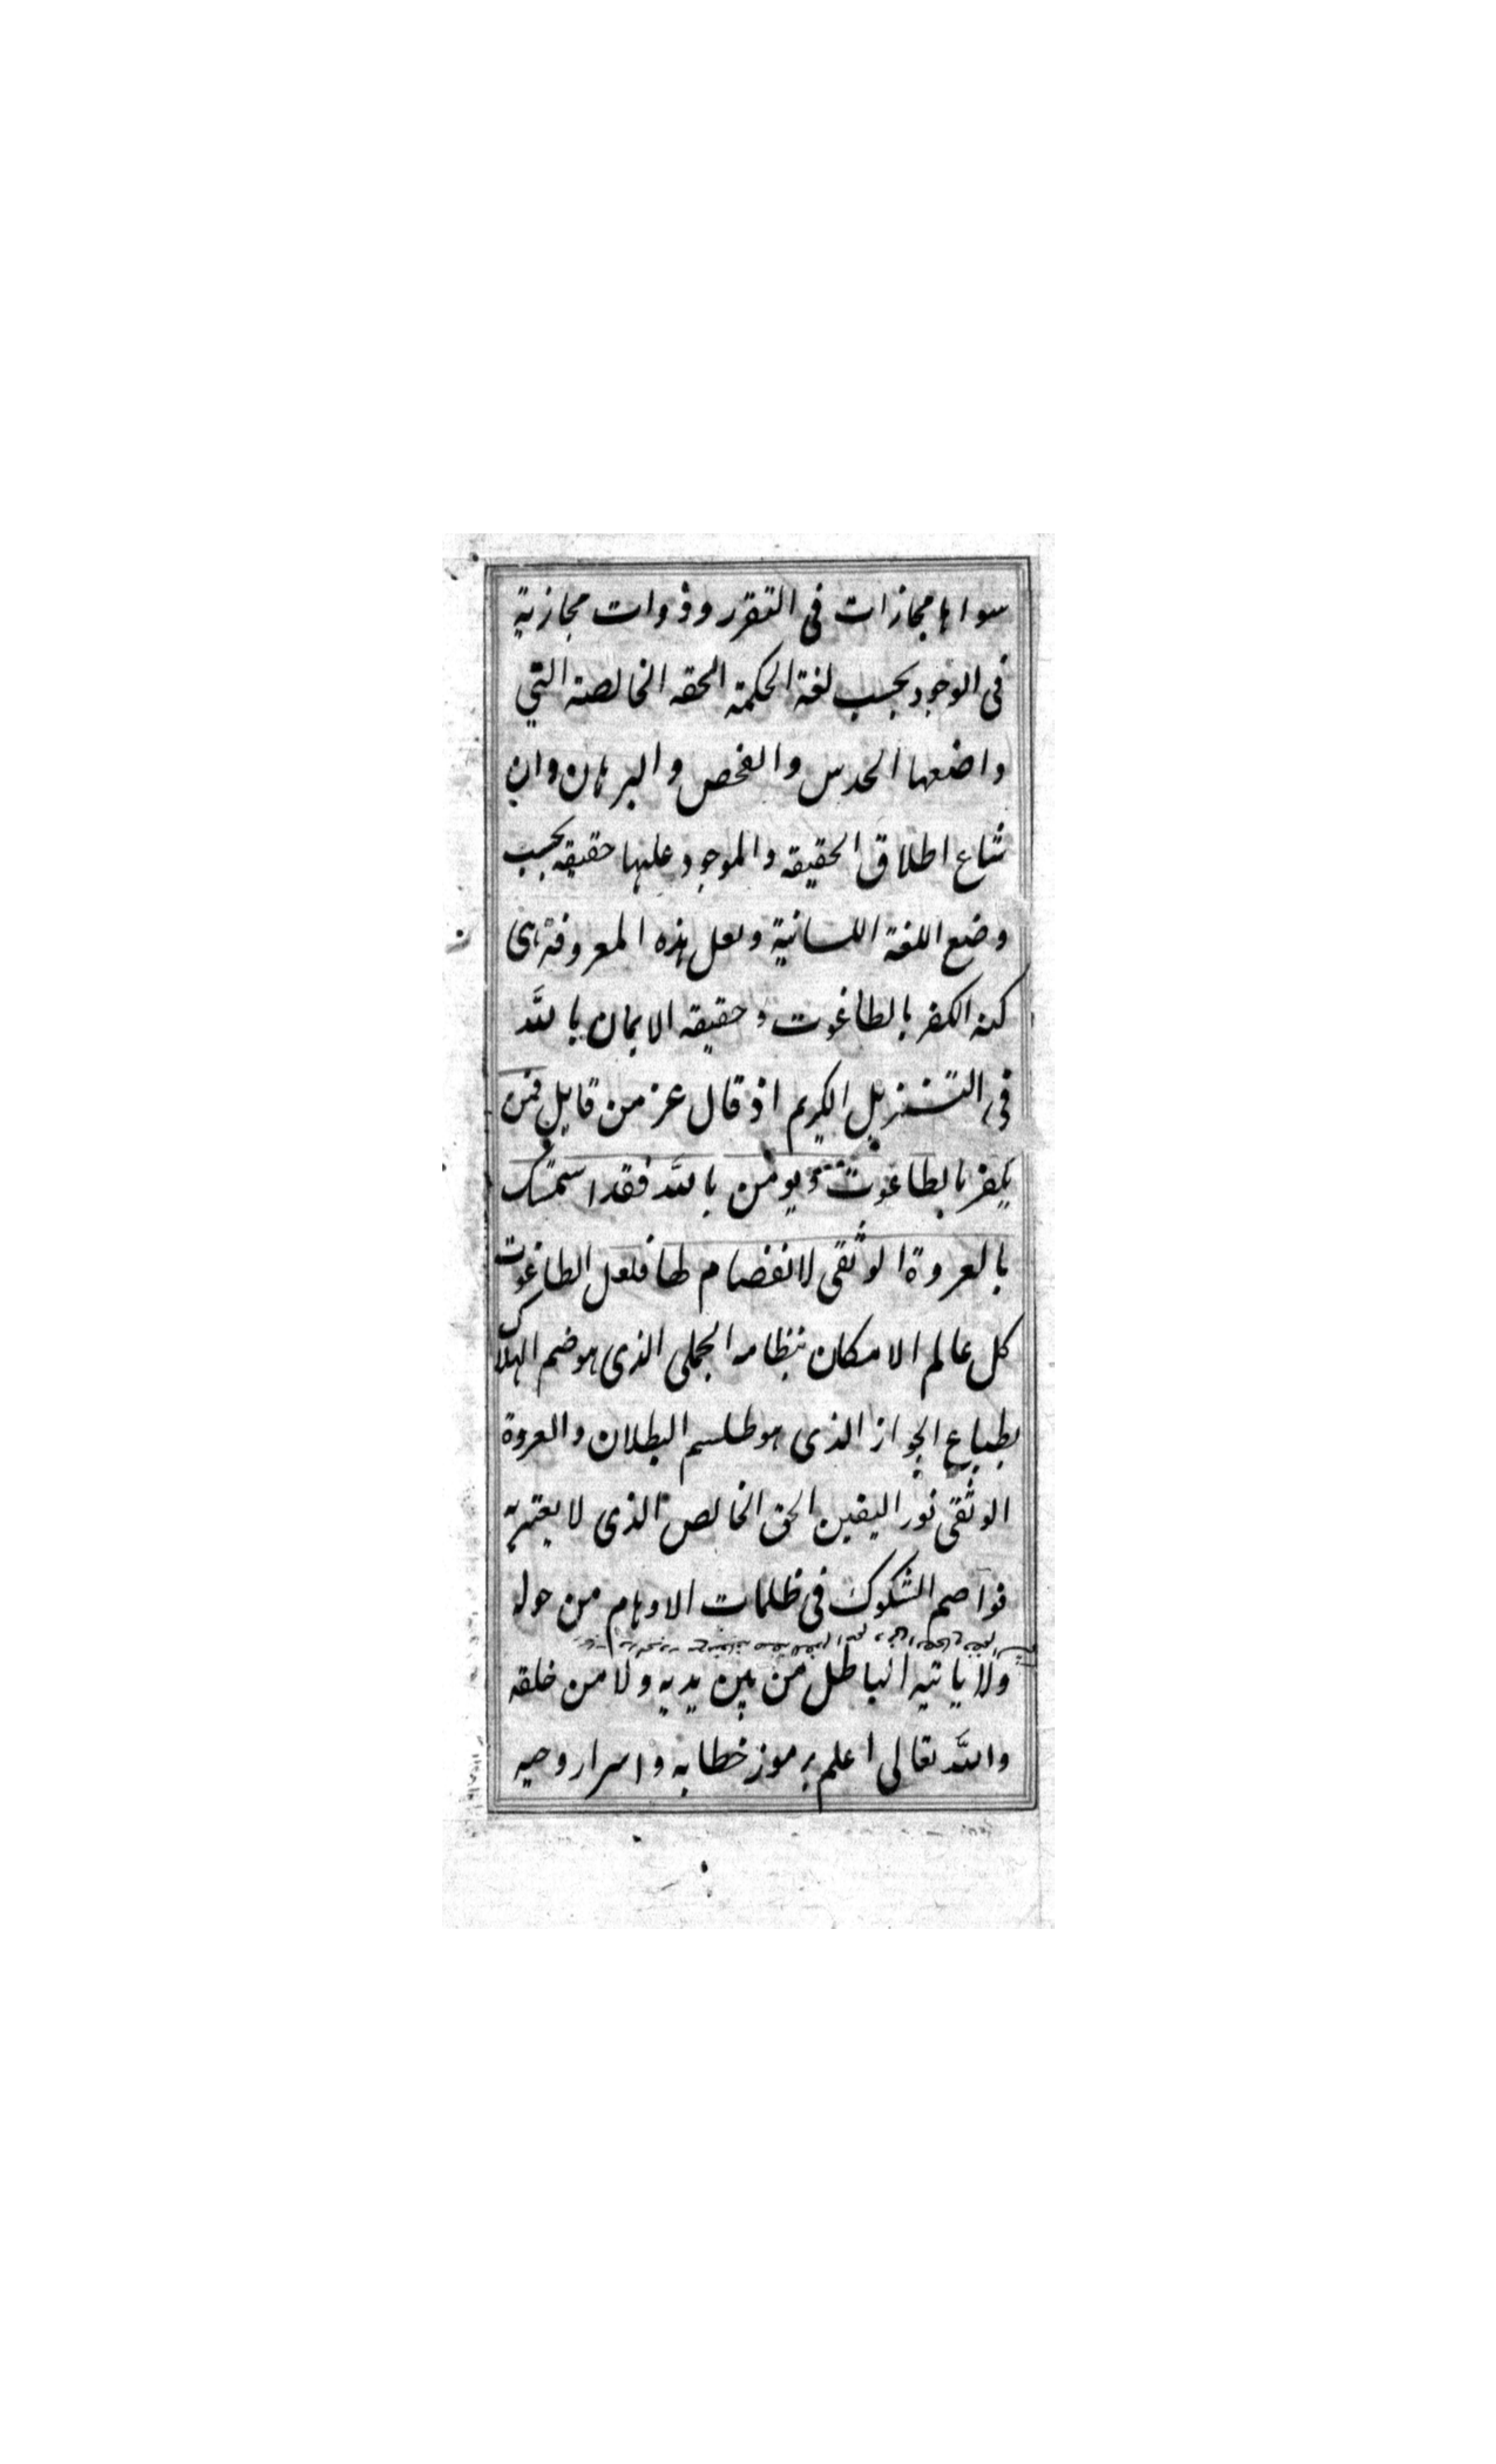 سواها مجازات فی التقرر وذوات مجازیة
فی الوجود بحسب لغة الحکمة الحقه الخالصة التی
واضعها الحدس والفحص والبرهان وان
شاع اطلاق الحقیقه والموجود علیها حقیقه بحسب
وضع اللغة اللسانیة ولعل هذه المعروفة هی
کنه الکفر بالطاغوت وحقیقه الایمان بالله
فی التنزیل الکریم اذ قال عز من قایل فمن
یکفر بالطاغوت ویومن بالله فقد استمسک
بالعروة الوثقی لا انفصام لها فلعل الطاغوت
کل عالم الامکان بنظامه الجملی الذی هو صنم الهلاک
بطباع الجواز الذی هو طلسم البطلان والعروة
الوثقی نور الیقین الحق الخالص الذی لا یعتریه
قواصم الشکوک فی ظلمات الاوهام من حوله
ولا یاتیه الباطل من بین یدیه ولا من خلفه
والله تعالی اعلم برموز خطابه واسرار وحیه